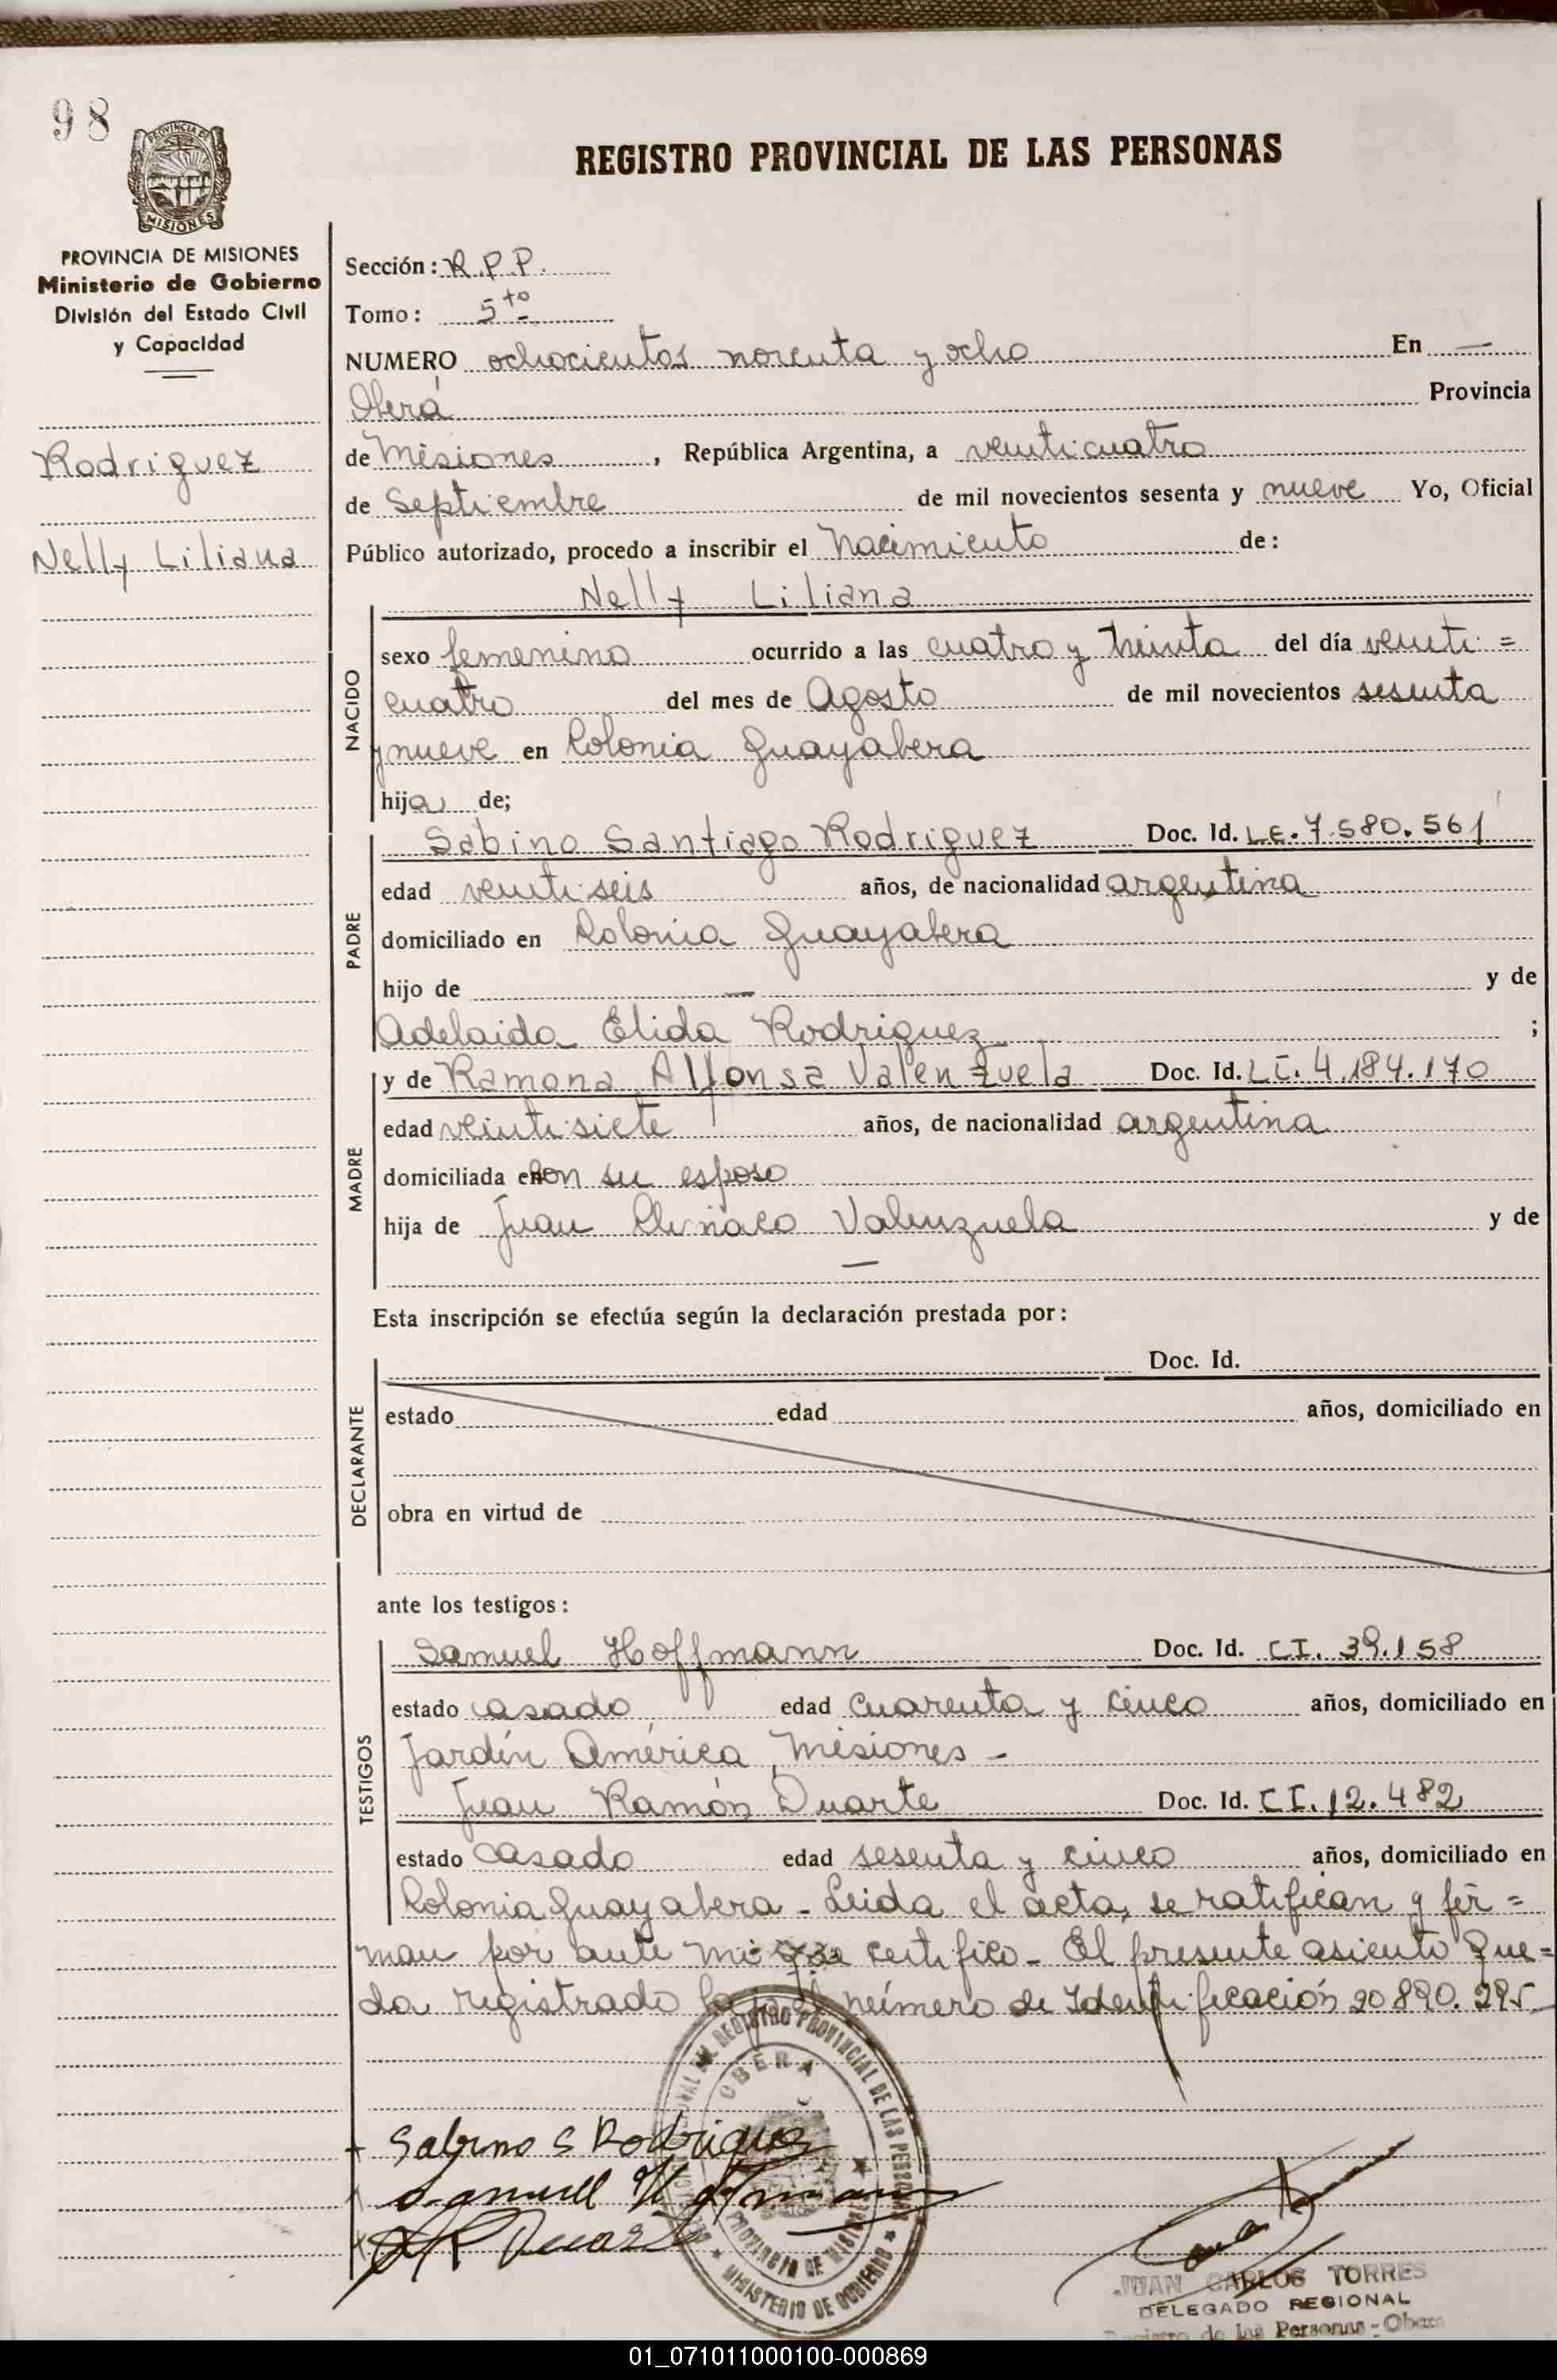 98
PROVINCIA DE
MISIONES
REGISTRO PROVINCIAL DE LAS PERSONAS
PROVINCIA DE MISIONES
Ministerio de Gobierno
División del Estado Civil
y Capacidad
Rodriguez
Nelly Liliana
Sección: R.P.P.
Tomo: 5to
NUMERO ochocientos noventa y ocho En —
Oberá Provincia
de Misiones, República Argentina, a veinticuatro
de Septiembre de mil novecientos sesenta y nueve Yo, Oficial
Público autorizado, procedo a inscribir el nacimiento de:
Nelly Liliana
NACIDO
sexo femenino ocurrido a las cuatro y treinta del día veinti=
cuatro del mes de Agosto de mil novecientos sesenta
y nueve en Colonia Guayabera
hija de;
PADRE
Sabino Santiago Rodriguez Doc. Id. L.E. 7.580.561
edad veintiseis años, de nacionalidad argentina
domiciliado en Colonia Guayabera
hijo de — y de
Adelaida Elida Rodriguez ;
MADRE
y de Ramona Alfonsa Valenzuela Doc. Id. L.C. 4.184.170
edad veintisiete años, de nacionalidad argentina
domiciliada en con su esposo
hija de Juan Valenzuela y de
—
Esta inscripción se efectúa según la declaración prestada por:
DECLARANTE
Doc. Id.
estado edad años, domiciliado en
obra en virtud de
ante los testigos:
TESTIGOS
Samuel Hoffmann Doc. Id. C.I. 39.158
estado casado edad cuarenta y cinco años, domiciliado en
Jardín América, Misiones -
Juan Ramón Duarte Doc. Id. C.I. 12.482
estado casado edad sesenta y cinco años, domiciliado en
Colonia Guayabera - Leida el acta, se ratifican y fir=
man por ante mi que certifico - El presente asiento que=
da registrado bajo el número de Identificación 20.890.295
REGISTRO PROVINCIAL DE LAS PERSONAS
OBERA
PROVINCIA DE MISIONES
MINISTERIO DE GOBIERNO
Sabino S Rodriguez
Samuel Hoffmann
Duarte
JUAN CARLOS TORRES
DELEGADO REGIONAL
Registro de las Personas - Obera
01_071011000100-000869